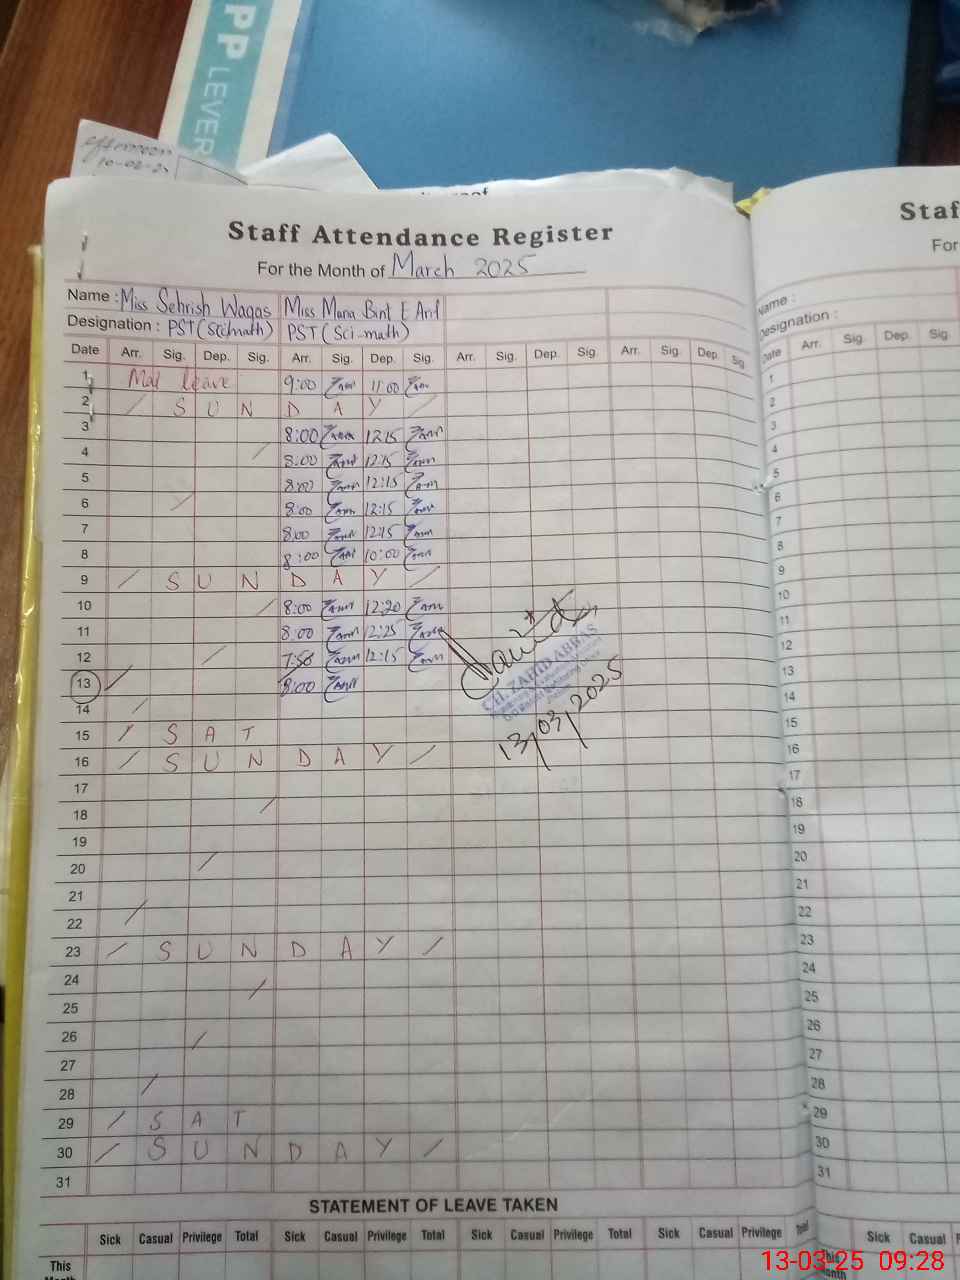 PP LEVER
afternoon
Staff Attendance Register
For the Month of March 2025
Name : Miss Sehrish Waqas Miss Mana Bint E Arif
Designation : PST (Sci math) PST (Sci-math)
Date Arr. Sig. Dep. Sig. Arr. Sig. Dep. Sig. Arr. Sig. Dep. Sig. Arr. Sig. Dep. Sig.
1 Mat leave 9:00 11:00
2 / S U N D A Y /
3 8:00 12:15
4 8:00 12:15
5 8:00 12:15
6 8:00 12:15
7 8:00 12:15
8 8:00 10:00
9 / S U N D A Y /
10 8:00 12:20
11 8:00 12:25
12 7:58 12:15
13 8:00
14
15 / S A T
16 / S U N D A Y /
17
18
19
20
21
22
23 / S U N D A Y /
24
25
26
27
28
29 / S A T
30 / S U N D A Y /
31
CH. ZAHID ABBAS
13/03/2025
STATEMENT OF LEAVE TAKEN
Sick Casual Privilege Total Sick Casual Privilege Total Sick Casual Privilege Total Sick Casual Privilege Total
This
Month
Staf
For
Name :
Designation :
Date Arr. Sig. Dep. Sig.
1
2
3
4
5
6
7
8
9
10
11
12
13
14
15
16
17
18
19
20
21
22
23
24
25
26
27
28
29
30
31
Sick Casual
This
Month
13-03-25 09:28